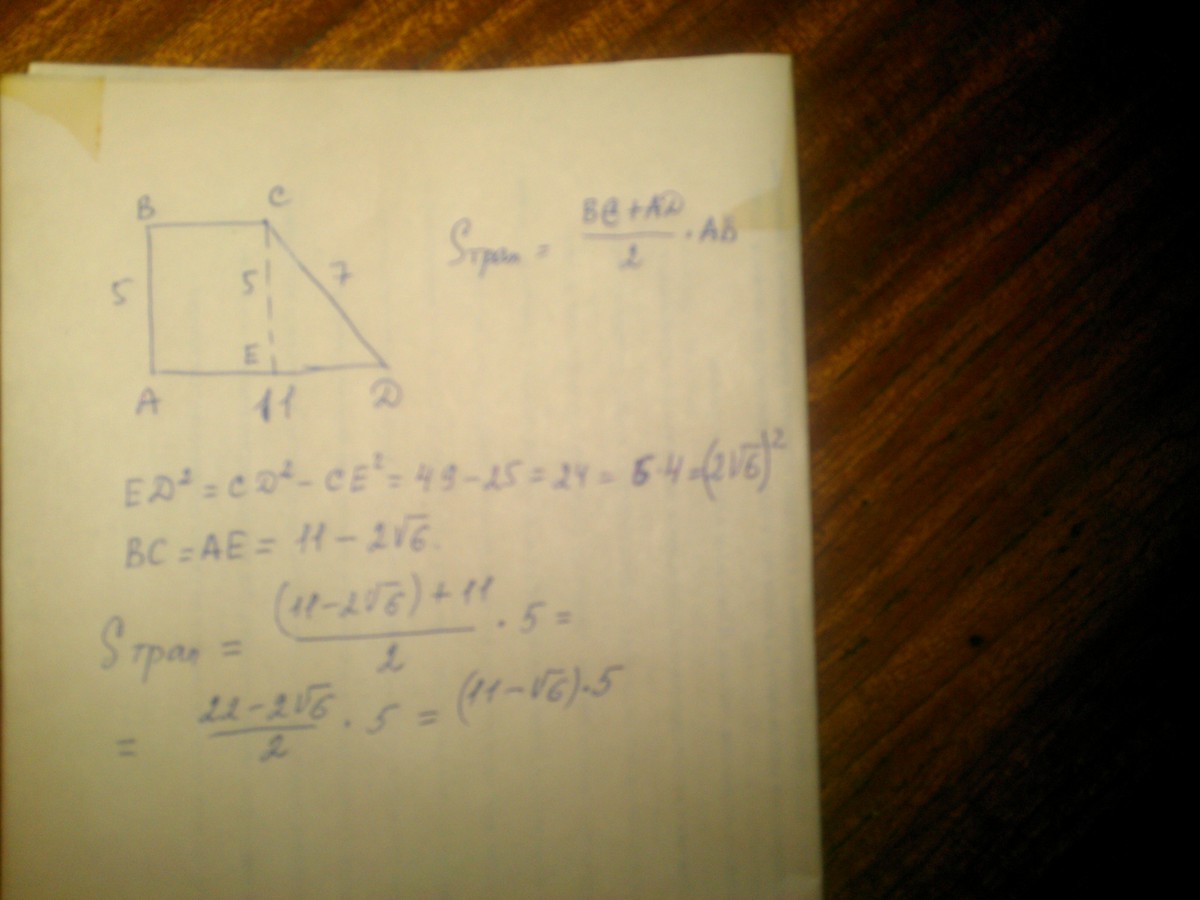 B C
5 5 7
E
A 11 D
Sтрап = (BC + AD)/2 · AB
ED² = CD² - CE² = 49 - 25 = 24 = 6·4 = (2√6)²
BC = AE = 11 - 2√6.
Sтрап = ((11 - 2√6) + 11)/2 · 5 =
= (22 - 2√6)/2 · 5 = (11 - √6)·5